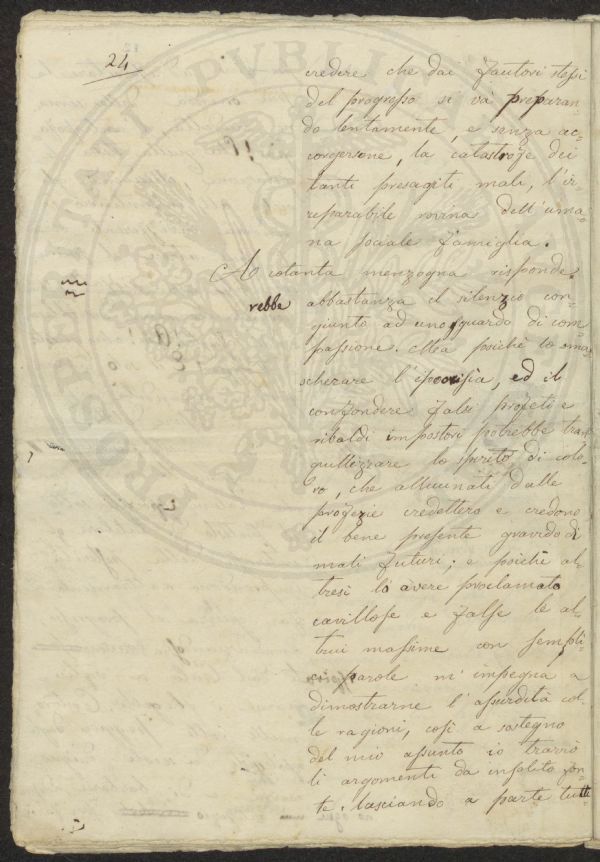 24
credere che dai fautori stessi
del progresso si và preparan-
do lentamente, e senza ac-
corgersene, la catastrofe dei
tanti presagiti mali, l'ir-
reparabile rovina dell'uma-
na sociale famiglia.
A cotanta menzogna risponde-
rebbe abbastanza il silenzio con-
giunto ad uno sguardo di com-
passione. Ma poichè lo sma-
scherare l'ipocrisia, ed il
confondere falsi profeti e
ribaldi impostori potrebbe tran
quillizzare lo spirito di colo-
ro, che alluminati dalle
profezie credettero e credono
il bene presente gravido di
mali futuri; e poichè al-
tresì lo avere proclamato
cavillose e false le al-
trui massime con sempli-
ci parole m'impegna a
dimostrarne l'assurdità col-
le ragioni, così a sostegno
del mio assunto io trarrò
li argomenti da insolito fon-
te. lasciando a parte tutti
PROPRIETATI PVBLICA